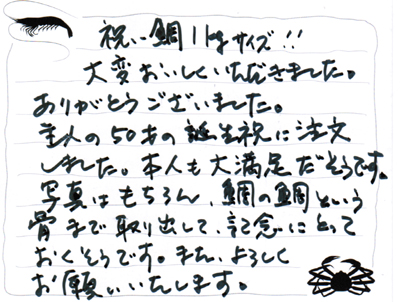 祝い鯛1kgサイズ!!
大変おいしくいただきました。
ありがとうございました。
主人の50才の誕生祝に注文
しました。本人も大満足だそうです。
写真はもちろん、鯛の鯛という
骨まで取り出して、記念にとって
おくそうです。また、よろしく
お願いいたします。